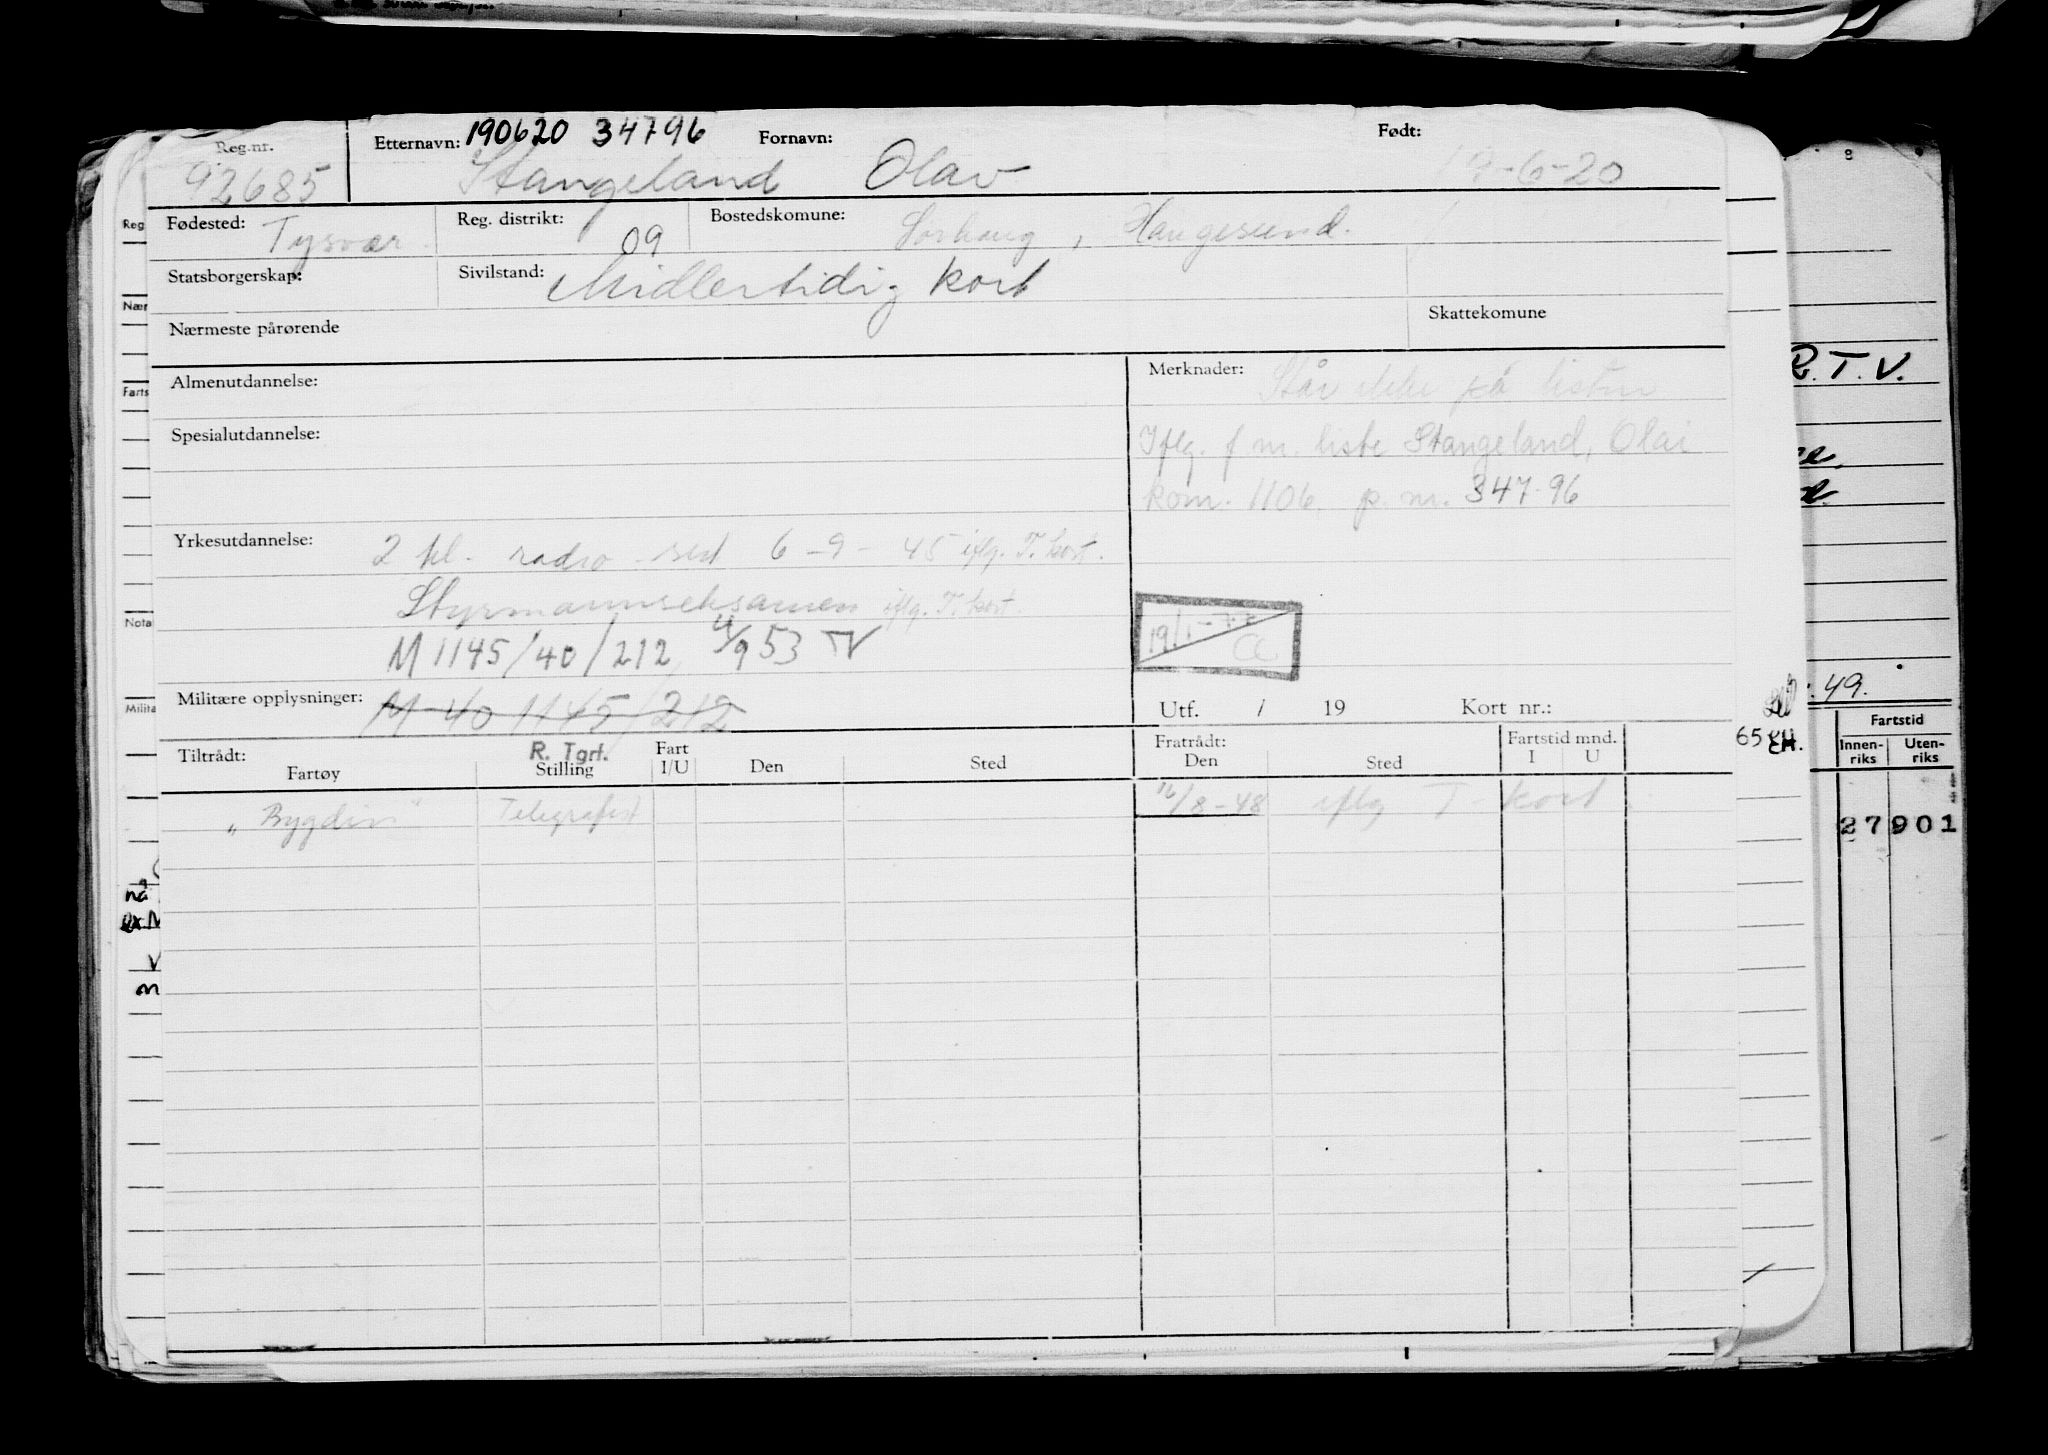 Reg.nr. Etternavn: 190620 34796 Fornavn: Født:
92685 Stangeland Olav 19-6-20
Fødested: Tysvær. Reg. distrikt: 09 Bostedskomune: Sørhaug, Haugesund.
Statsborgerskap: Sivilstand: Midlertidig kort
Nærmeste pårørende Skattekomune
Almenutdannelse: Merknader: Står ikke på listen
Spesialutdannelse: Iflg. f.m. liste Stangeland, Olai
kom. 1106. p. nr. 347.96
Yrkesutdannelse: 2 kl. radio sert 6-9-45 iflg. T. kort.
Styrmannseksamen iflg. T. kort.
M 1145/40/212, 4/9 53
Militære opplysninger: M-40 1145/212
Utf. / 19 Kort nr.:
Tiltrådt: R. Tgrf. Fart Fratrådt: Fartstid mnd.
Fartøy Stilling I/U Den Sted Den Sted I U
"Bygdin" Telegrafist 12/8-48 iflg T-kort
Reg
Nær
Farts
Nota
Milita
8
R.T.V.
49.
65
EH.
Fartstid
Innen-riks Uten-riks
27901